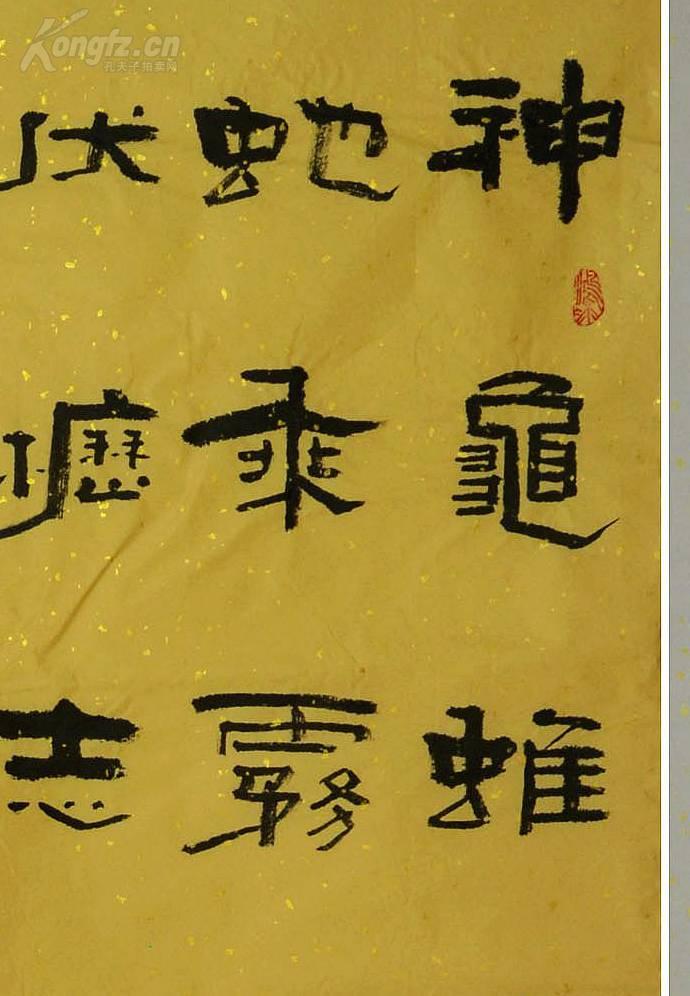 神龜雖
虵乘霧
伏櫪志
Kongfz.cn
孔夫子拍卖网